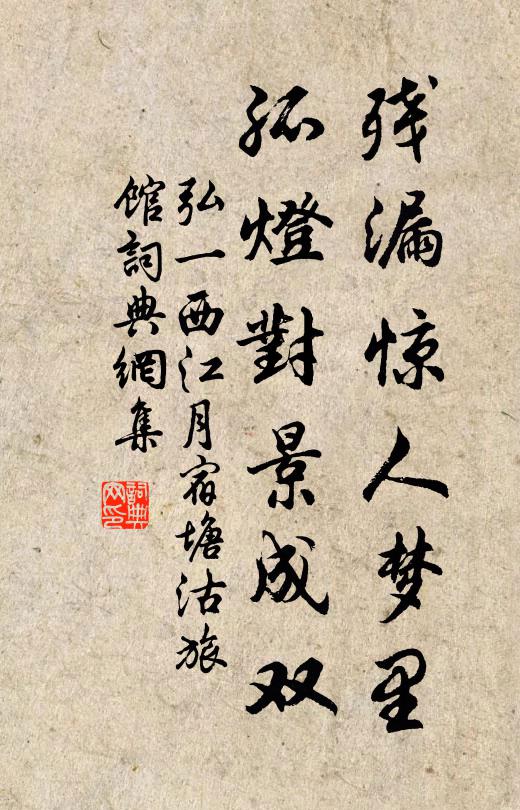 残漏惊人梦里
孤燈對景成双
弘一西江月宿塘沽旅
馆詞典網集
詞典
网印